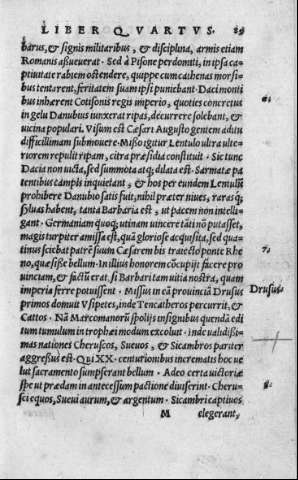 LIBER QVARTVS. 89
barus, & signis militaribus, & disciplina, armis etiam
Romanis assueuerat. Sed à Pisone perdomiti, in ipsa ca-
ptiuitate rabiem ostendere, quippe cum cathenas morsi-
bus tentarent, feritatem suam ipsi puniebant. Daci monti
bus inhærent Cotisonis regis imperio, quoties concretus
in gelu Danubus iunxerat ripas, decurrere solebant, &
uicina populari. Visum est Cæsari Augusto gentem aditu
difficillimam submouere. Misso igitur Lentulo ultra ulte-
riorem repulit ripam, citra præsidia constituit. Sic tunc
Dacia non uicta, sed summota atq; dilata est. Sarmatæ pa
tentibus campis inquietant, & hos per eundem Lentulum
prohibere Danubio satis fuit, nihil præter niues, raras q;
syluas habent, tanta Barbaria est, ut pacem non intelli-
gant. Germaniam quoq; utinam uincere tanti nō putasset,
magis turpiter amissa est, quā gloriose acquisita, sed qua-
tinus sciebat patrē suum Cæsarem bis traiecto ponte Rhe
no, quæsisse bellum. In illius honorem cōcupijt facere pro
uinciam, & factū erat, si Barbari tam uitia nostra, quam
imperia ferre potuissent. Missus in eā prouinciā Drusus
primos domuit Vsipetes, inde Tencatheros percurrit, &
Cattos. Nā Marcomanorū spolijs insignibus quendā edi
tum tumulum in trophæi modum excoluit. Inde ualidissi-
mas nationes Cheruscos, Sueuos, & Sicambros pariter
aggressus est. Qui XX. centurionibus incrematis hoc ue
lut sacramento sumpserant bellum. Adeo certa uictoriæ
spe ut prædam in antecessum pactione diuiserint. Cheru-
sci equos, Sueui aurum, & argentum. Sicambri captiuos
M elegerant,
7.
Drusus
8.